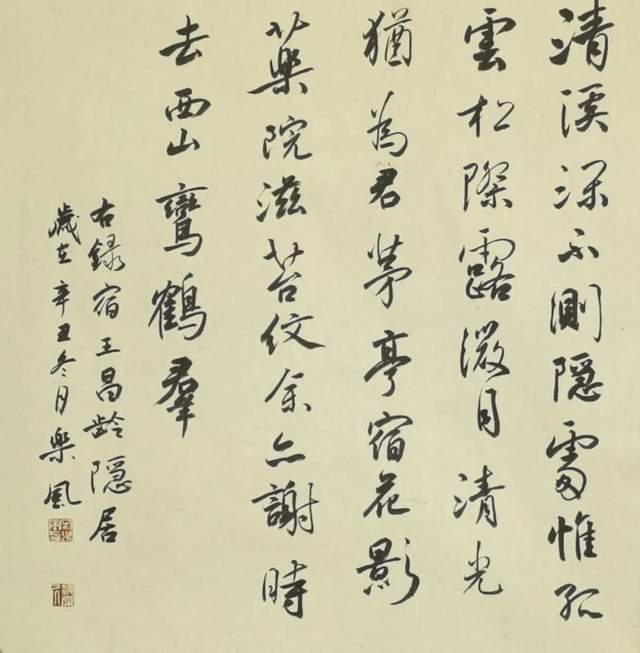 清溪深不測隱處惟孤
雲松際露微月清光
猶為君茅亭宿花影
藥院滋苔紋余亦謝時
去西山鸞鶴羣
右録宿王昌龄隱居
歲在辛丑冬月樂風